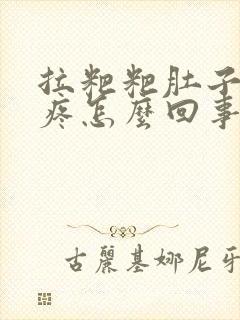 拉粑粑肚子
疼怎麼回事
古麗基娜尼牙